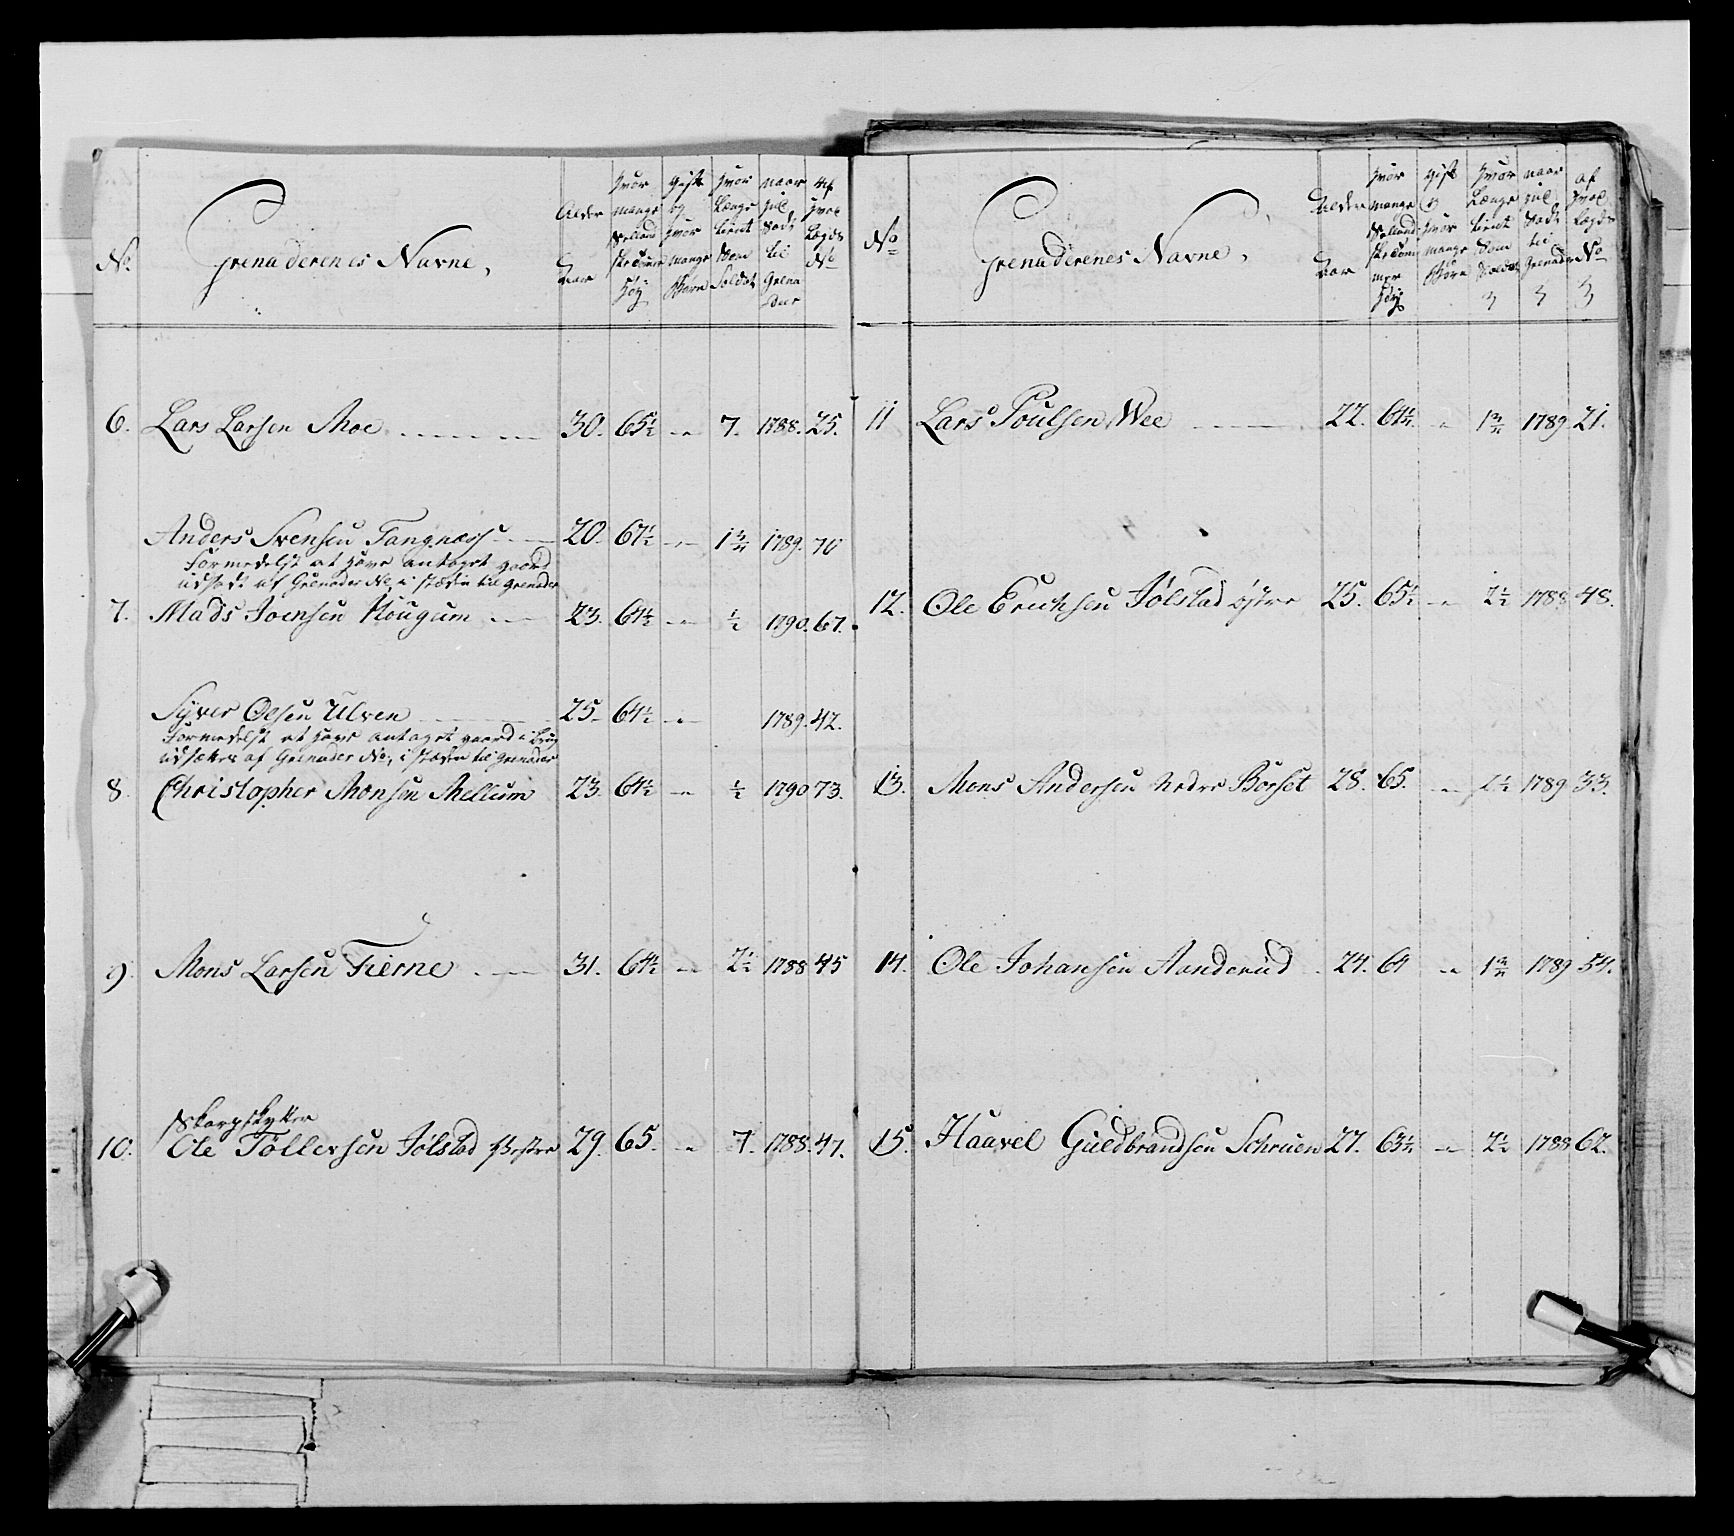 No.
Grenaderenes Navne,
Alder
Aar
hvor mange Sælland: ske Tomer høj
gift og hvor mange Børn
hvor Længe tient Som Soldat
naar
til Grena deer
af hvad Lægds No
6. Lars Larsen Moe 30. 65½ 7. 1788. 25.
Anders Svensen Tangnæss 20. 67½ 1¾ 1789. 70
Formedelst at have antaget gaard
udsadt af Grenader No, i stæden til Grenader
7. Mads Joensen Hougum 23. 64½ ½ 1790. 67.
Syver Olsen Ulven 25. 64½ 1789. 42.
Formedelst at have antaget gaard i Brug
udsættes af Grenader No, i stæden til Grenader
8. Christopher Monsen Mellum 23. 64½ ½ 1790 73.
9. Mons Larsen Fierne 31. 64½ 2½ 1788 45
Skarpskytter
10. Ole Tollersen Jølstad Vestre 29. 65. 7. 1788. 47.
No
Grenaderenes Navne,
Alder
Aar
hvor mange Sælland ske Tom mer høj
gift og hvor mange Børn
hvor Længe tient Som Soldat
naar
til Grenader
af hvad Lægds No
11 Lars Poulsen Wee 22. 64¼. 1¾ 1789. 21.
12. Ole Erichsen Jølstad østre 25. 65½ 2½ 1788 48.
13. Mons Andersen Nedre Borset 28. 65. 1½ 1789 33.
14. Ole Johansen Aanderud 24. 64 1¾ 1789 54.
15. Haavel Guldbrandsen Schruen 27. 63½ 2½ 1788 62.